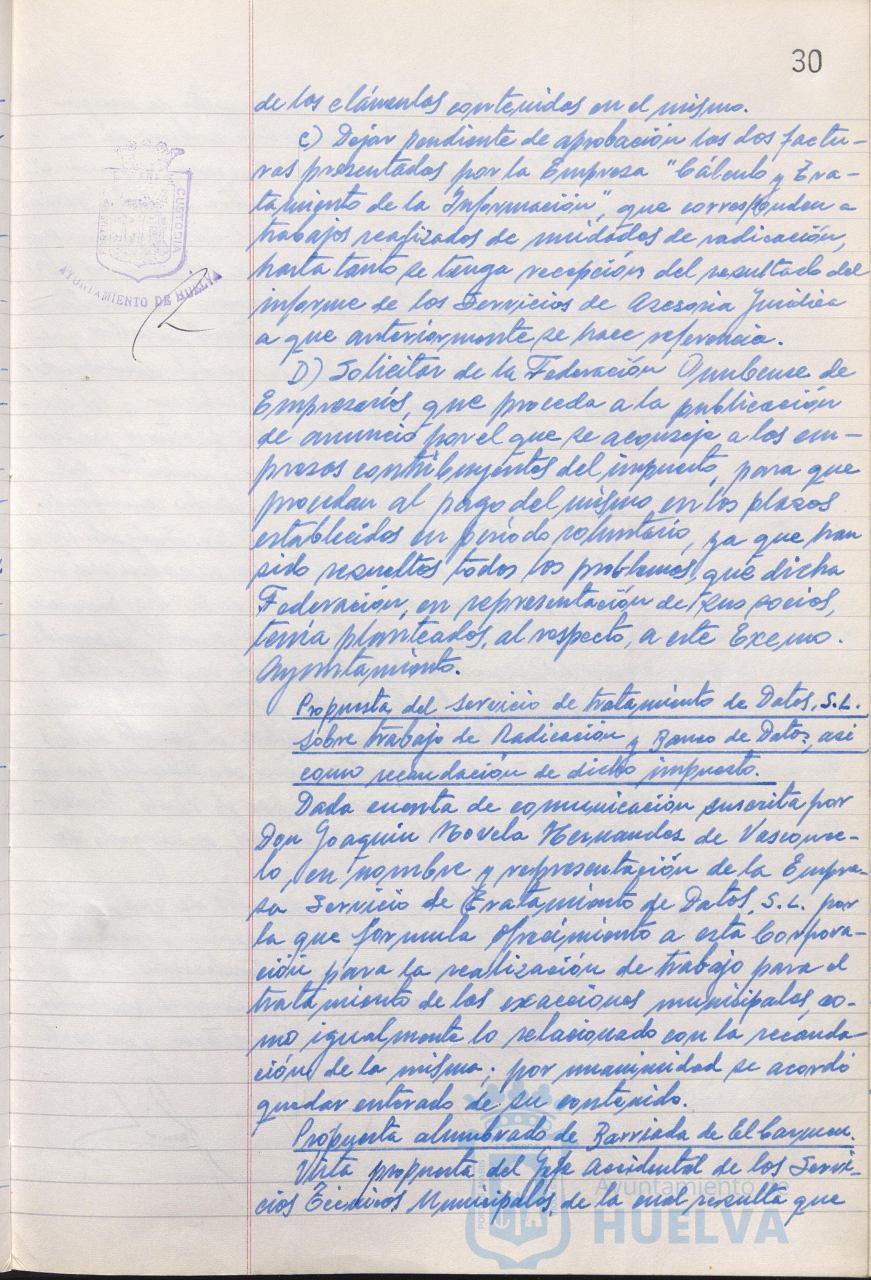 30
de los cláusulas contenidas en el mismo.
C) Dejar pendiente de aprobación las dos factu-
ras presentadas por la Empresa "Cálculo y Tra-
tamiento de la Información", que corresponden a
trabajos realizados de unidades de radicación,
hasta tanto se tenga recepción del resultado del
informe de los Servicios de Asesoria Jurídica
a que anteriormente se hace referencia.
D) Solicitar de la Federación Onubense de
Empresarios, que proceda a la publicación
de anuncio por el que se aconseje a las em-
presas contribuyentes del impuesto, para que
procedan al pago del mismo en los plazos
establecidos en período voluntario, ya que han
sido resueltos todos los problemas que dicha
Federación, en representación de sus socios,
tenía planteados, al respecto, a este Excmo.
Ayuntamiento.
Propuesta del Servicio de tratamiento de Datos, S.L.
sobre trabajo de Radicación y Banco de Datos, así
como recaudación de dicho impuesto.
Dada cuenta de comunicación suscrita por
Don Joaquín Novela Hernandez de Vasconce-
lo, en nombre y representación de la Empre-
sa Servicio de Tratamiento de Datos, S.L. por
la que formula ofrecimiento a esta Corpora-
ción para la realización de trabajo para el
tratamiento de las exacciones municipales, co-
mo igualmente lo relacionado con la recauda-
ción de la misma; por unanimidad se acordó
quedar enterado de su contenido.
Propuesta alumbrado de Barriada de El Carmen.
Vista propuesta del Jefe Accidental de los Servi-
cios Técnicos Municipales, de la cual resulta que
CUSTODIA
AYUNTAMIENTO DE HUELVA
Ayuntamiento de
HUELVA